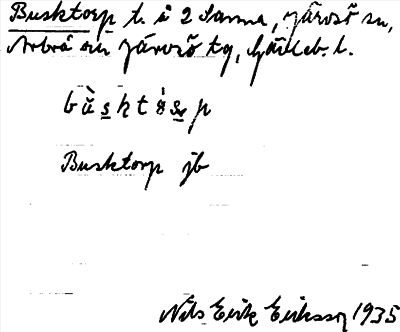 Busktorp t. å 2 Sanna, Järvsö sn,
Arbrå och Järvsö tg, Gävleb. l.
Busktorp jb
Nils Eric Eriksson 1935